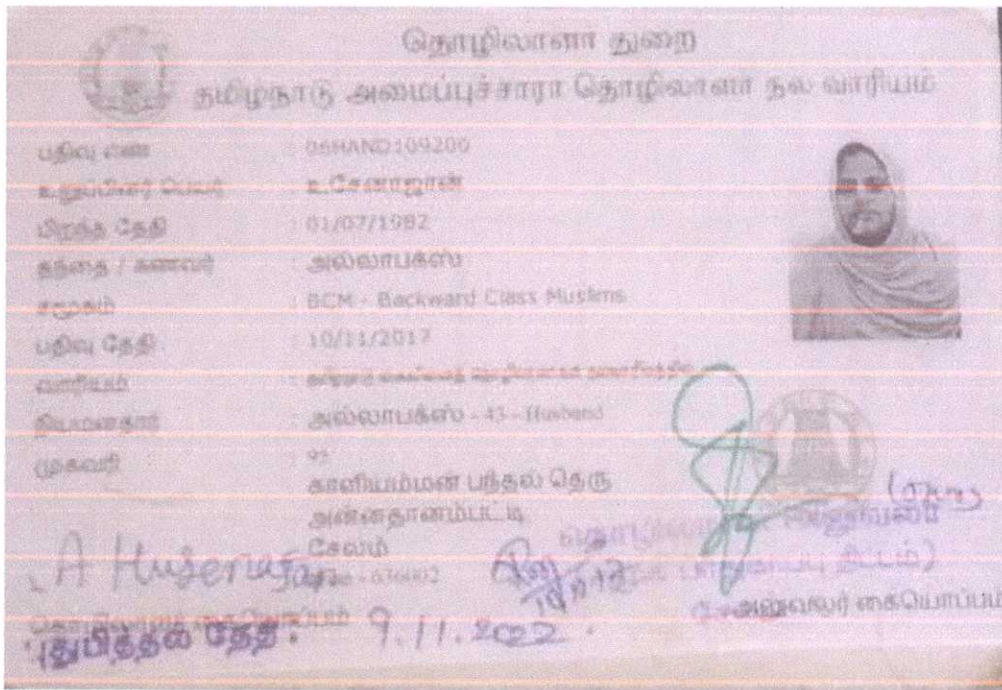 தொழிலாளர் துறை
தமிழ்நாடு அமைப்புச்சாரா தொழிலாளர் நல வாரியம்
பதிவு எண் : 06HAND109200
உறுப்பினர் பெயர் : உசேனாஜான்
பிறந்த தேதி : 01/07/1982
தந்தை / கணவர் : அல்லாபக்ஸ்
சமூகம் : BCM - Backward Class Muslims
பதிவு தேதி : 10/11/2017
வாரியம் :
நியமனதாரர் : அல்லாபக்ஸ் - 43 - Husband
முகவரி : 95
காளியம்மன் பந்தல் தெரு
அன்னதானம்பட்டி
சேலம்
- 636002
A Husenajan
அலுவலர் கையொப்பம்
புதுபித்தல் தேதி: 9.11.2022.